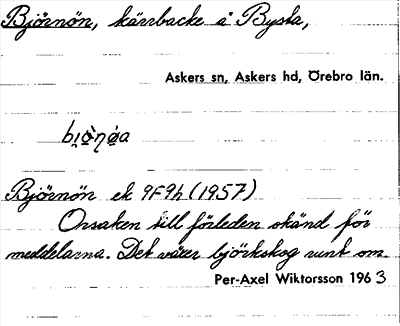 Björnön, kärrbacke å Bysta,
Askers sn, Askers hd, Örebro län.
Björnön ek 9F9h (1957)
Orsaken till förleden okänd för
meddelarna. Det växer björkskog runt om.
Per-Axel Wiktorsson 1963